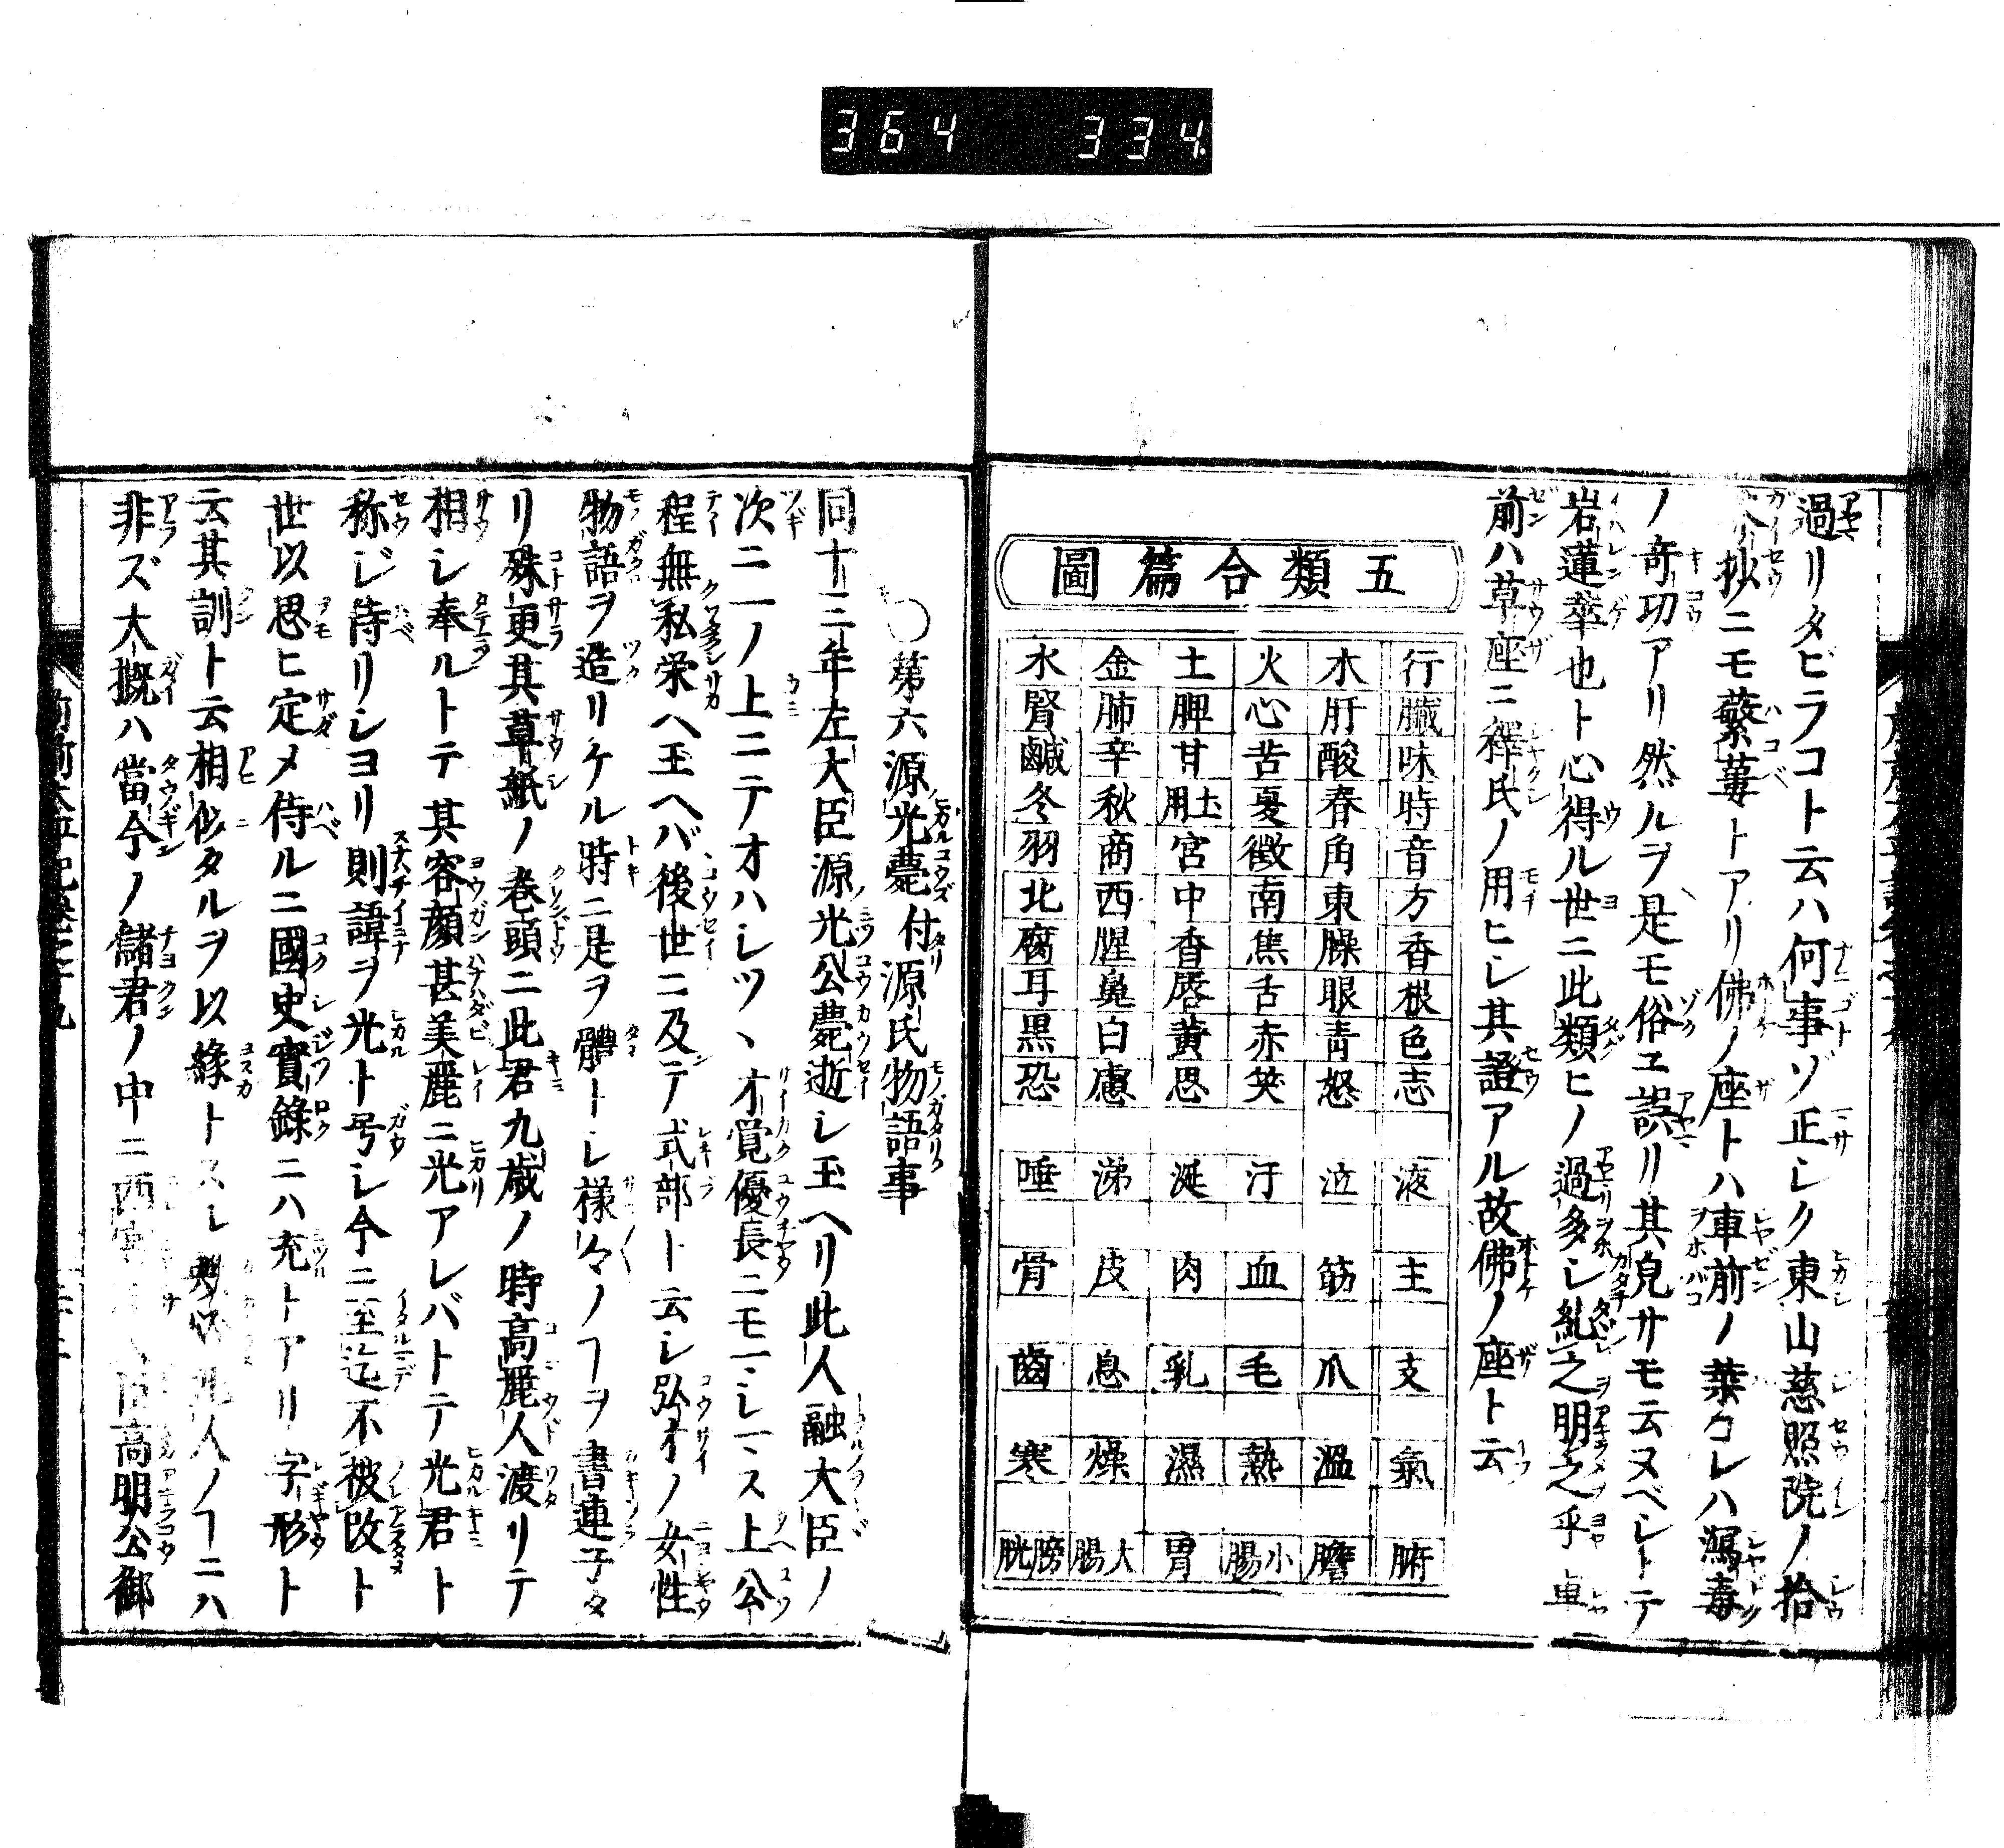 364 334
過リタビラコト云ハ何事ゾ正シク東山慈照院ノ拾
芥抄ニモ蘩蔞トアリ佛ノ座トハ車前ノ葉コレハ瀉毒
ノ奇功アリ然ルヲ是モ俗ヱ誤リ其皃サモ云ヌベシトテ
岩蓮華也ト心得ル世ニ此類ヒノ過多シ糺之明之乎車
前ハ草座ニ釋氏ノ用ヒシ其證アル故佛ノ座ト云
五類合篇圖
行臟味時音方香根色志液主支氣腑
木肝酸春角東臊眼青怒泣筋爪溫膽
火心苦夏徴南焦舌赤笑汗血毛熱小腸
土脾甘土用宮中香唇黃思涎肉乳濕胃
金肺辛秋商西腥鼻白慮涕皮息燥大腸
水腎鹹冬羽北腐耳黒恐唾骨齒寒膀胱
○第六源光薨付源氏物語事
同十三年左大臣源光公薨逝シ玉ヘリ此人融大臣ノ
次ニ一ノ上ニテオハシツヽ才覚優長ニモ一シス上公
程無私栄ヘ玉ヘバ後世ニ及テ式部ト云シ弘才ノ女性
物語ヲ造リケル時ニ是ヲ體トシ様々ノヿヲ書連子タ
リ殊更其草紙ノ巻頭ニ此君九歳ノ時高麗人渡リテ
相シ奉ルトテ其容顔甚美麗ニ光アレバトテ光君ト
称ジ侍リシヨリ則諱ヲ光ト号シ今ニ至迄不被改ト
世以思ヒ定メ侍ルニ國史實錄ニハ充トアリ字形ト
云其訓ト云相似タルヲ以縁トスレ 此人ノヿニハ
非ズ大概ハ當今ノ儲君ノ中ニ西宮 臣高明公御